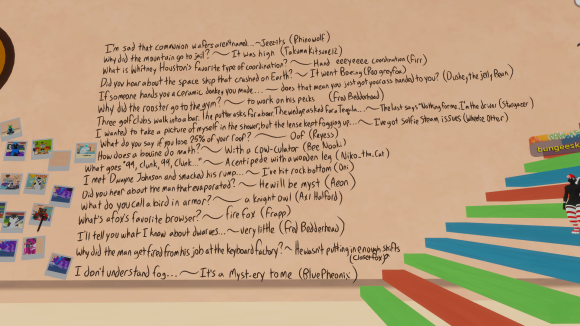 I'm sad that communion wafers aren't named... ~ Jeezits (Rhinowolf)
Why did the mountain go to jail? ~ It was high (TakumaKitsune12)
What is Whitney Houston's favorite type of coordination? ~ Hand eeeyeeee coordination (Firr)
Did you hear about the space ship that crashed on Earth? ~ It went Boeing (Poogreyfox)
If someone hands you a ceramic donkey you made... ~ does that mean you just got your ass handed to you? (Duskey the Jelly Bean)
Why did the rooster go to the gym? ~ to work on his pecks (Fred Bedderhead)
Three golf clubs walk into a bar. The putter asks for a beer. The wedge asked for a Tequila... ~ The last says "Nothing for me, I'm the driver (Stargazer)
I wanted to take a picture of myself in the shower, but the lense kept fogging up... ~ I've got selfie steam issues (Wheetie Otter)
What do you say if you lose 25% of your roof? ~ Oof (Reyess)
How does a bovine do math? ~ With a cow-culator (Bee Nook)
What goes "99, clunk, 99, clunk..." ~ A centipede with a wooden leg (Niko_the_Cat)
I met Dwayne Johnson and smacked his rump... ~ I've hit rock bottom (Oni)
Did you hear about the man that evaporated? ~ He will be myst (Aeon)
What do you call a bird in armor? ~ a knight owl (Axl Halford)
What's a fox's favorite browser? ~ fire fox (Frapp)
I'll tell you what I know about dwarves... ~ very little (Fred Bedderhead)
Why did the man get fired from his job at the keyboard factory? ~ He wasn't putting in enough shifts
(Closerfox)
I don't understand fog... ~ It's a Myst-ery to me (BluePheonix)
bungeesk